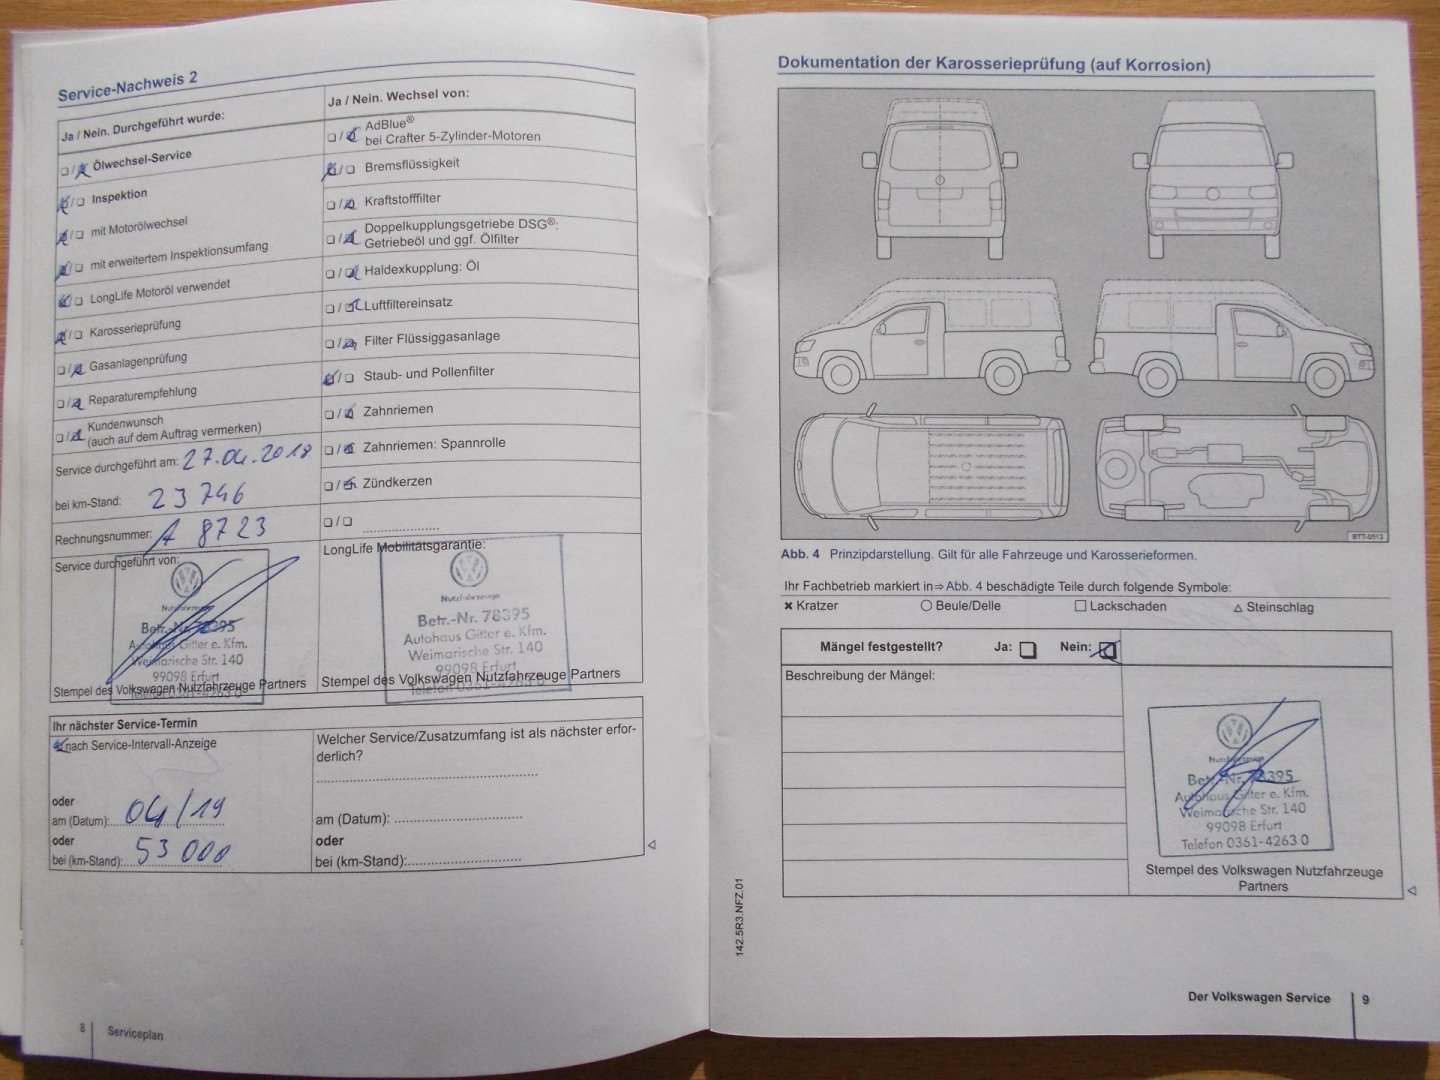 Service-Nachweis 2
Ja / Nein. Durchgeführt wurde:
Ölwechsel-Service
Inspektion
mit Motorölwechsel
mit erweitertem Inspektionsumfang
LongLife Motoröl verwendet
Karosserieprüfung
Gasanlagenprüfung
Reparaturempfehlung
Kundenwunsch
(auch auf dem Auftrag vermerken)
Service durchgeführt am: 27.04.2018
bei km-Stand: 23 746
Rechnungsnummer: A 8723
Service durchgeführt von:
Nutzfahrzeuge
Betr.-Nr. 78395
Autohaus Gitter e. Kfm.
Weimarische Str. 140
99098 Erfurt
Telefon 0361-4263 0
Stempel des Volkswagen Nutzfahrzeuge Partners
Ja / Nein. Wechsel von:
AdBlue®
bei Crafter 5-Zylinder-Motoren
Bremsflüssigkeit
Kraftstofffilter
Doppelkupplungsgetriebe DSG®:
Getriebeöl und ggf. Ölfilter
Haldexkupplung: Öl
Luftfiltereinsatz
Filter Flüssiggasanlage
Staub- und Pollenfilter
Zahnriemen
Zahnriemen: Spannrolle
Zündkerzen
LongLife Mobilitätsgarantie:
Nutzfahrzeuge
Betr.-Nr. 78395
Autohaus Gitter e. Kfm.
Weimarische Str. 140
99098 Erfurt
Telefon 0361-4263 0
Stempel des Volkswagen Nutzfahrzeuge Partners
Ihr nächster Service-Termin
nach Service-Intervall-Anzeige
oder
am (Datum): 04/19
oder
bei (km-Stand): 53 000
Welcher Service/Zusatzumfang ist als nächster erfor-
derlich?
am (Datum):
oder
bei (km-Stand):
8 Serviceplan
Dokumentation der Karosserieprüfung (auf Korrosion)
BTT-0513
Abb. 4 Prinzipdarstellung. Gilt für alle Fahrzeuge und Karosserieformen.
Ihr Fachbetrieb markiert in⇒Abb. 4 beschädigte Teile durch folgende Symbole:
✖ Kratzer ○ Beule/Delle □ Lackschaden △ Steinschlag
Mängel festgestellt? Ja: Nein:
Beschreibung der Mängel:
Nutzfahrzeuge
Betr.-Nr. 78395
Autohaus Gitter e. Kfm.
Weimarische Str. 140
99098 Erfurt
Telefon 0361-4263 0
Stempel des Volkswagen Nutzfahrzeuge
Partners
142.5R3.NFZ.01
Der Volkswagen Service 9